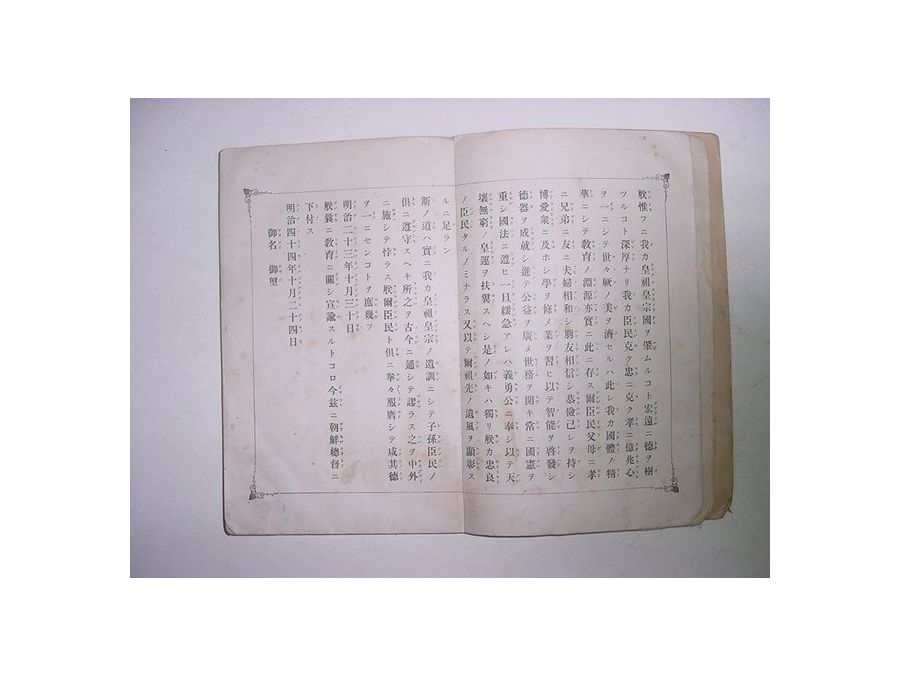 朕惟フニ我カ皇祖皇宗國ヲ肇ムルコト宏遠ニ德ヲ樹
ツルコト深厚ナリ我カ臣民克ク忠ニ克ク孝ニ億兆心
ヲ一ニシテ世々厥ノ美ヲ濟セルハ此レ我カ國體ノ精
華ニシテ教育ノ淵源亦實ニ此ニ存ス爾臣民父母ニ孝
ニ兄弟ニ友ニ夫婦相和シ朋友相信シ恭儉己レヲ持シ
博愛衆ニ及ホシ學ヲ修メ業ヲ習ヒ以テ智能ヲ啓發シ
德器ヲ成就シ進テ公益ヲ廣メ世務ヲ開キ常ニ國憲ヲ
重シ國法ニ遵ヒ一旦緩急アレハ義勇公ニ奉シ以テ天
壤無窮ノ皇運ヲ扶翼スヘシ是ノ如キハ獨リ朕カ忠良
ノ臣民タルノミナラス又以テ爾祖先ノ遺風ヲ顯彰ス
ルニ足ラン
斯ノ道ハ實ニ我カ皇祖皇宗ノ遺訓ニシテ子孫臣民ノ
俱ニ遵守スヘキ所之ヲ古今ニ通シテ謬ラス之ヲ中外
ニ施シテ悖ラス朕爾臣民ト俱ニ拳々服膺シテ咸其德
ヲ一ニセンコトヲ庶幾フ
明治二十三年十月三十日
朕曩ニ教育ニ關シ宣諭スルトコロ今茲ニ朝鮮總督ニ
下付ス
明治四十四年十月二十四日
御名 御璽